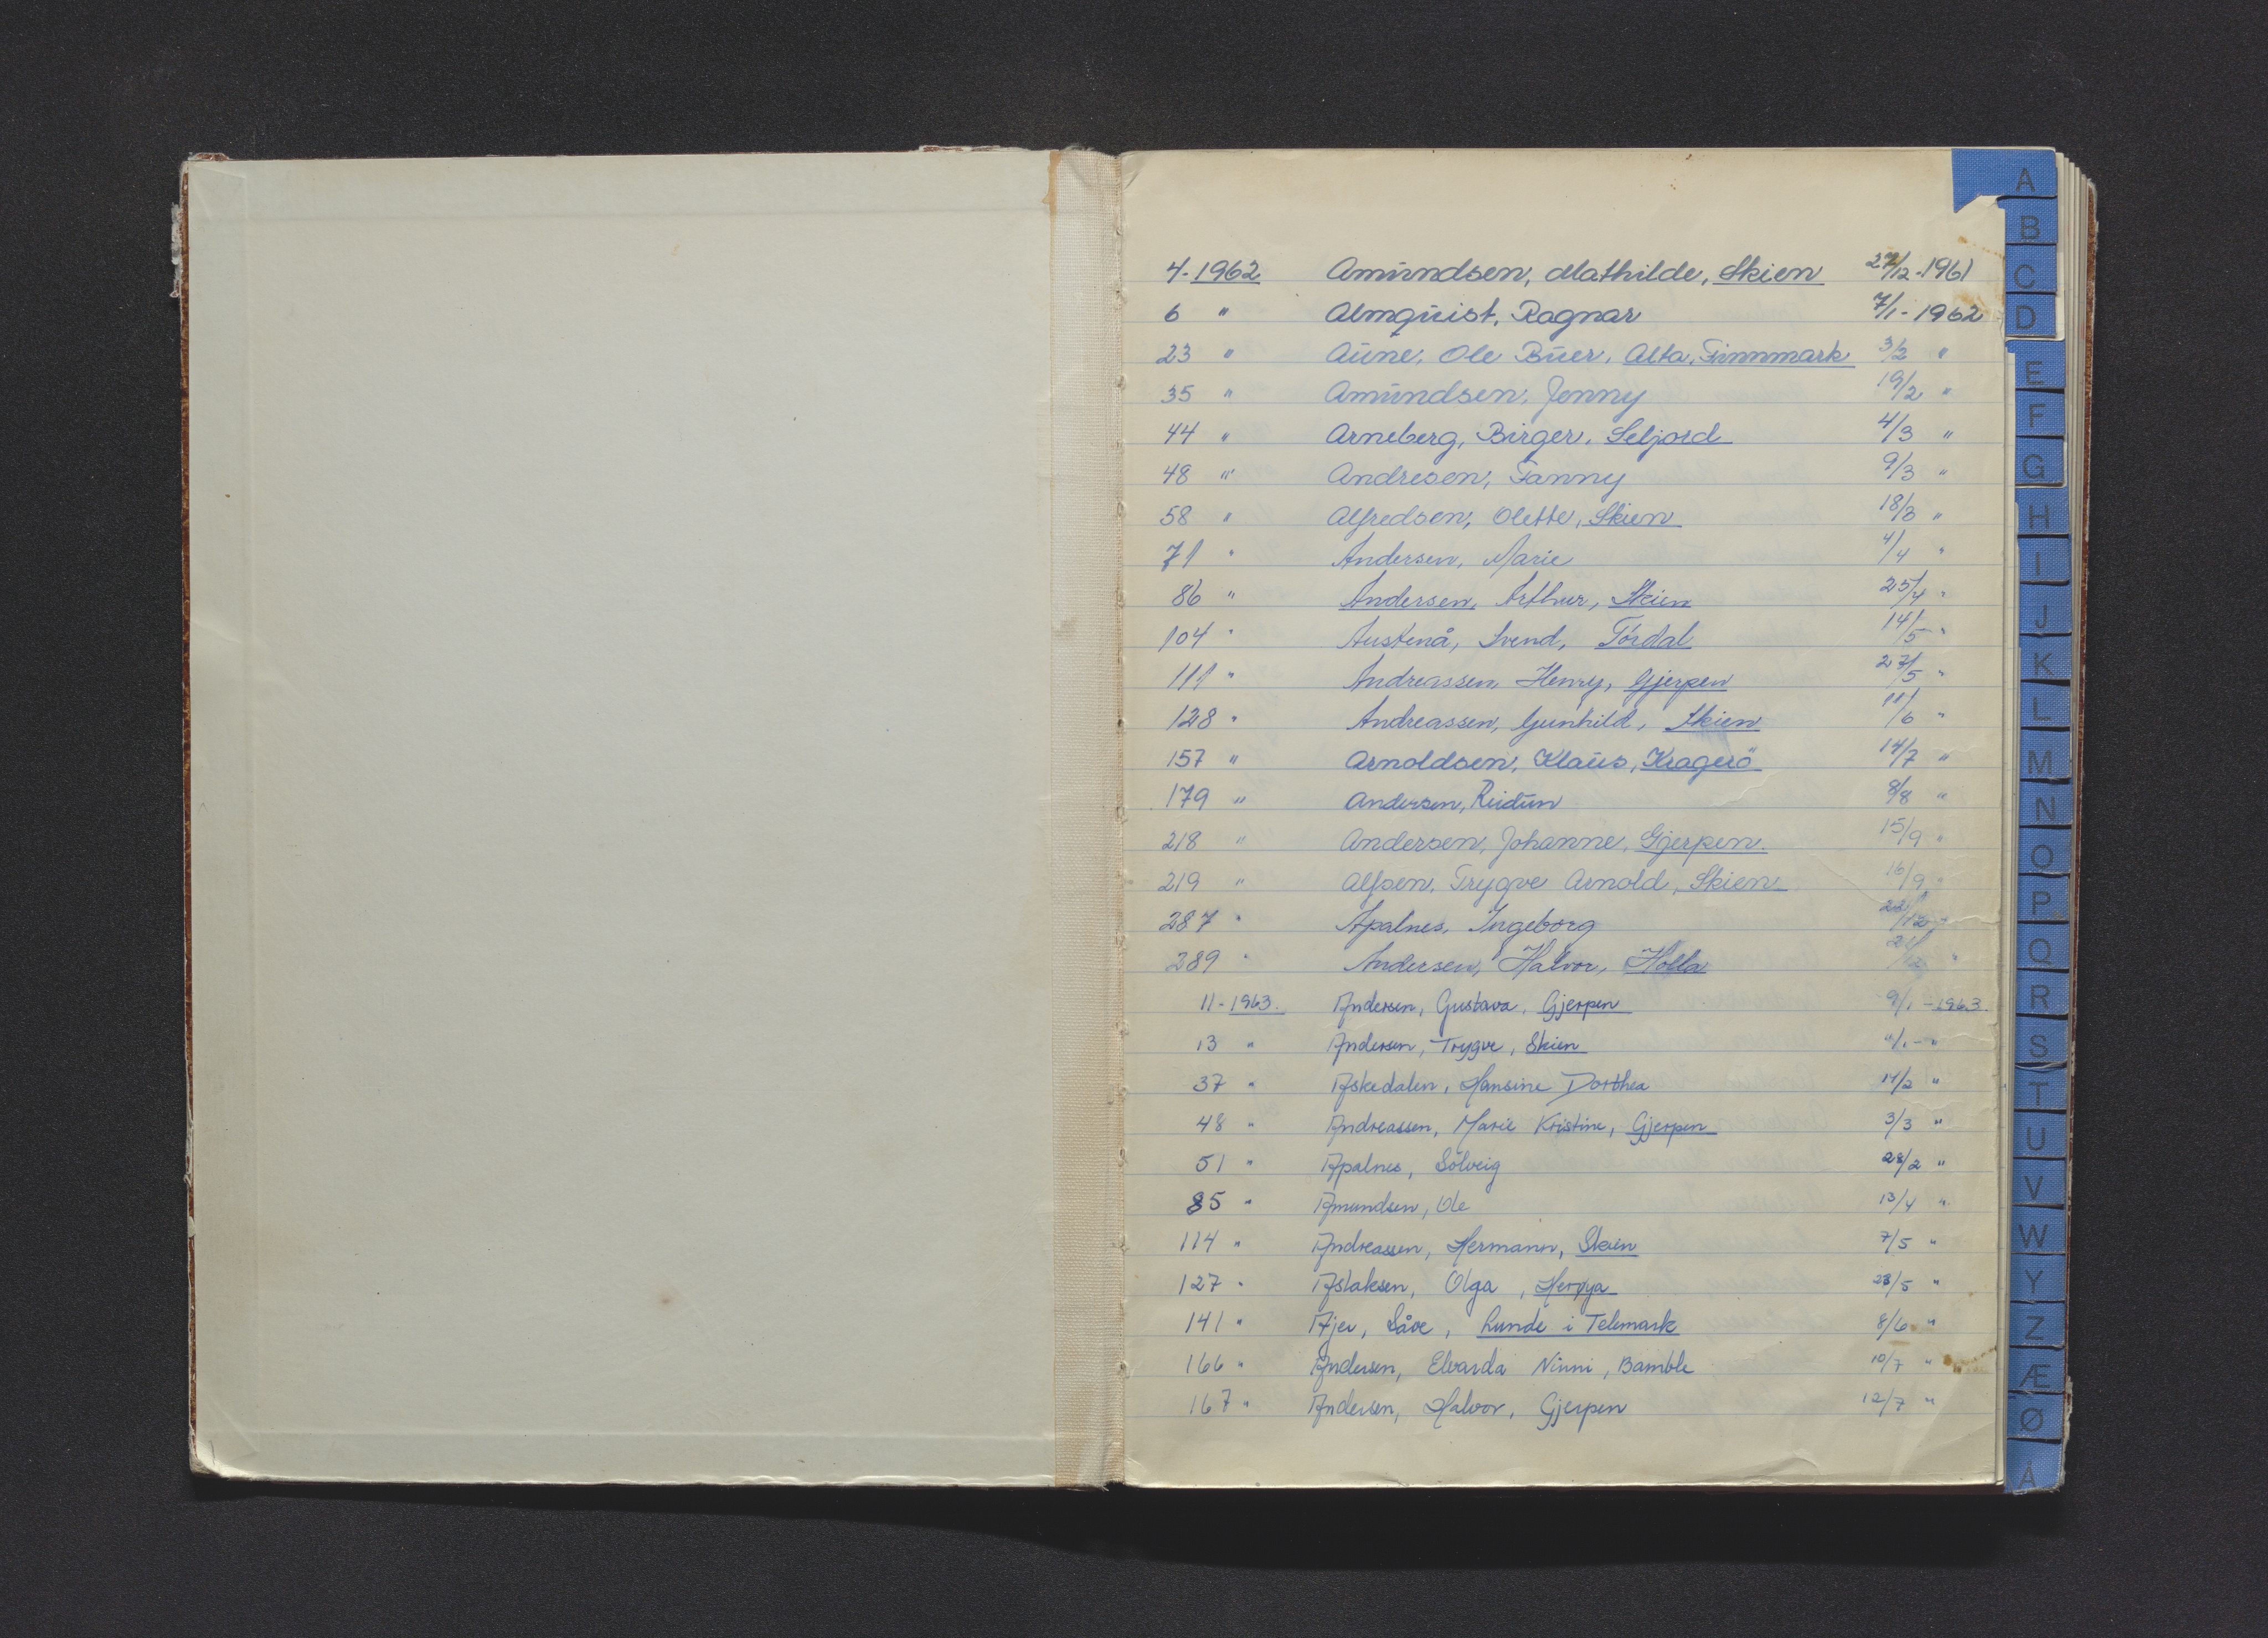 4-1962 Amundsen, Mathilde, Skien 27/12-1961
6 " Almquist, Ragnar 7/1-1962
23 " Aune, Ole Buer, Alta, Finnmark 3/2 "
35 " Amundsen, Jenny 19/2 "
44 " Arneberg, Birger, Seljord 4/3 "
48 " Andresen, Fanny 9/3 "
58 " Alfredsen, Olette, Skien 18/3 "
71 " Andersen, Marie 4/4 "
86 " Andersen, Arthur, Skien 25/4 "
104 " Austenå, Svend, Tørdal 14/5 "
111 " Andreassen, Henry, Gjerpen 27/5 "
128 " Andreassen, Gunhild, Skien 11/6 "
157 " Arnoldsen, Klaus, Kragerö 14/7 "
179 " Andersen, Reidun 8/8 "
218 " Andersen, Johanne, Gjerpen. 15/9 "
219 " Alfsen, Trygve Arnold, Skien 16/9 "
287 " Apalnes, Ingeborg
289 " Andersen, Halvor, Holla
11-1963. Andersen, Gustava, Gjerpen 9/1-1963.
13 " Andersen, Trygve, Skien
37 " Askedalen, Hansine Dorthea 14/2 "
48 " Andreassen, Marie Kristine, Gjerpen 3/3 "
51 " Apalnes, Solveig 28/2 "
85 " Amundsen, Ole 13/4 "
114 " Andreassen, Hermann, Skien 7/5 "
127 " Aslaksen, Olga, Herøya 23/5 "
141 " Ajer, Såve, Lunde i Telemark 8/6 "
166 " Andersen, Elvarda Ninni, Bamble 10/7 "
167 " Andersen, Halvor, Gjerpen 12/7 "
A
B
C
D
E
F
G
H
I
J
K
L
M
N
O
P
Q
R
S
T
U
V
W
Y
Z
Æ
Ø
Å